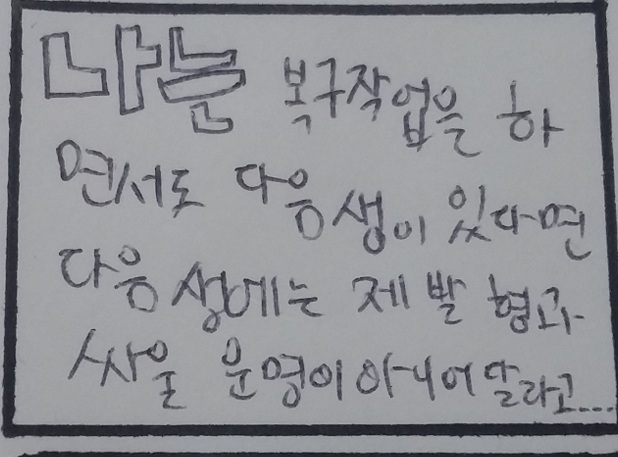 나는 복구작업을 하
면서도 다음생이 있다면
다음 생에는 제발 형과
싸울 운명이 아니어달라고...